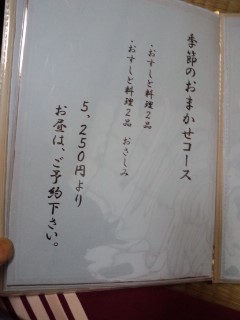 季節のおまかせコース
・おすしと料理2品
・おすしと料理2品 おさしみ
5,250円より
お昼は、ご予約下さい。